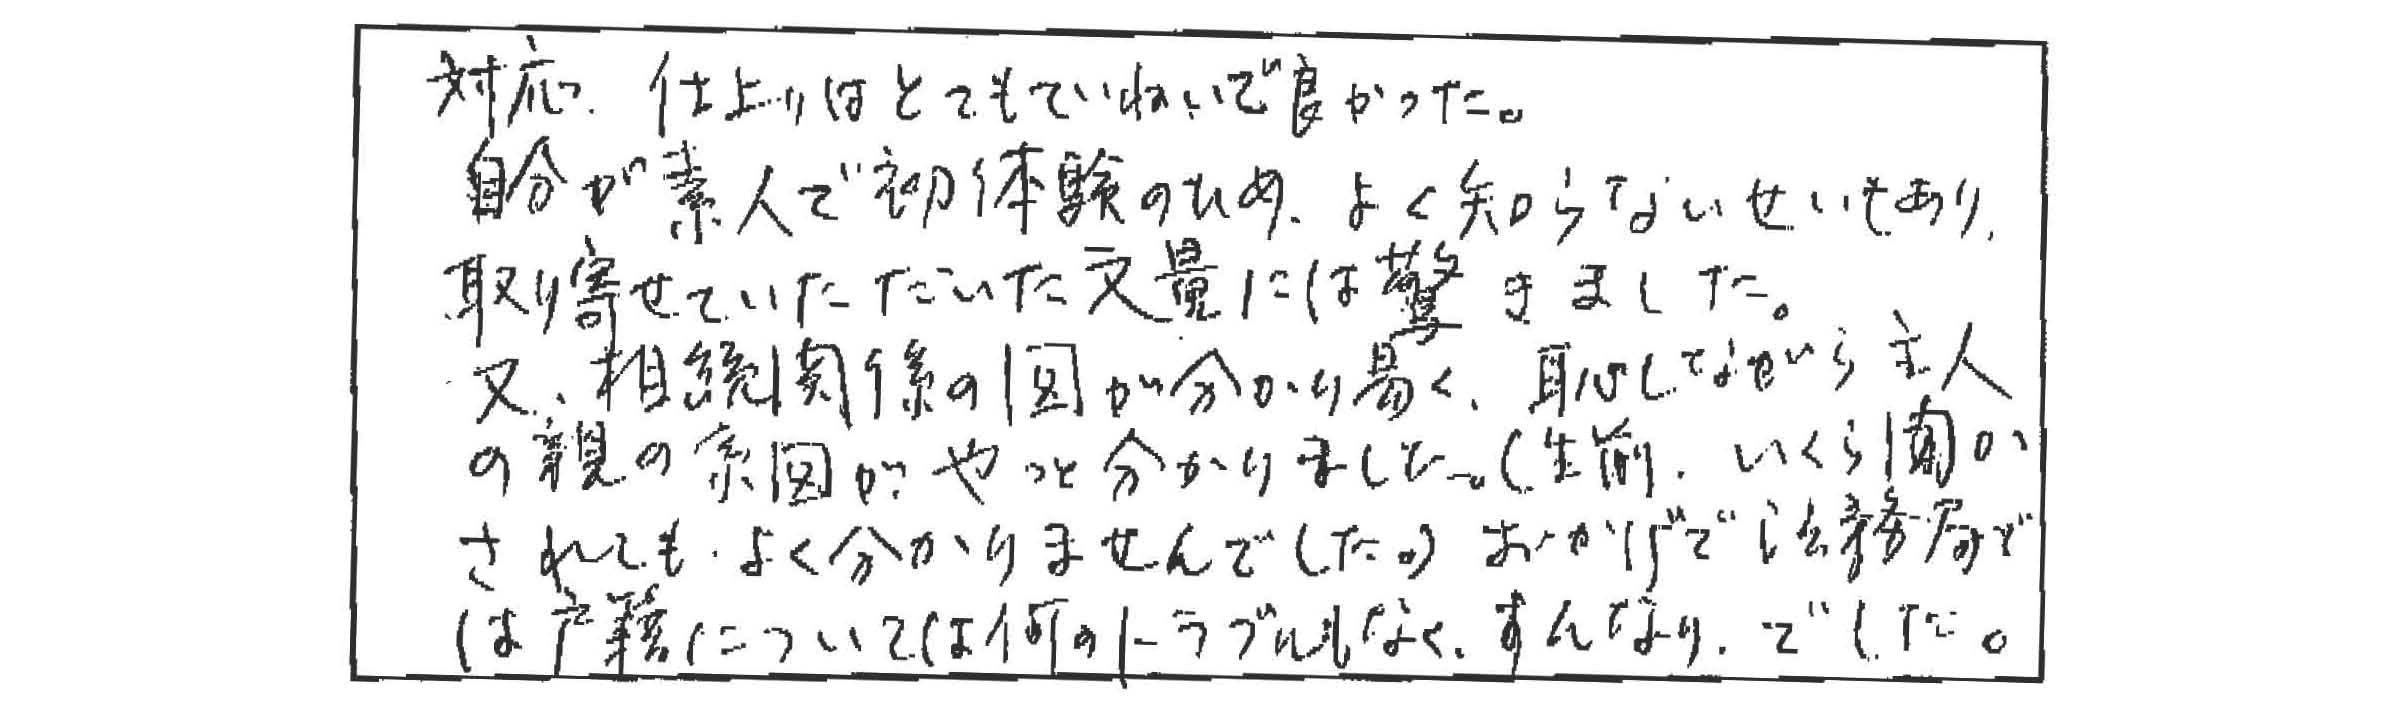 対応、仕上りはとてもていねいで良かった。
自分が素人で初体験のため、よく知らないせいもあり、
取り寄せていただいた文量には驚きました。
又、相続関係の図が分かり易く、恥しながら主人
の親の系図がやっと分かりました。(生前、いくら聞か
されても、よく分かりませんでした。) おかげで法務局で
は戸籍については何のトラブルもなく、すんなり、でした。